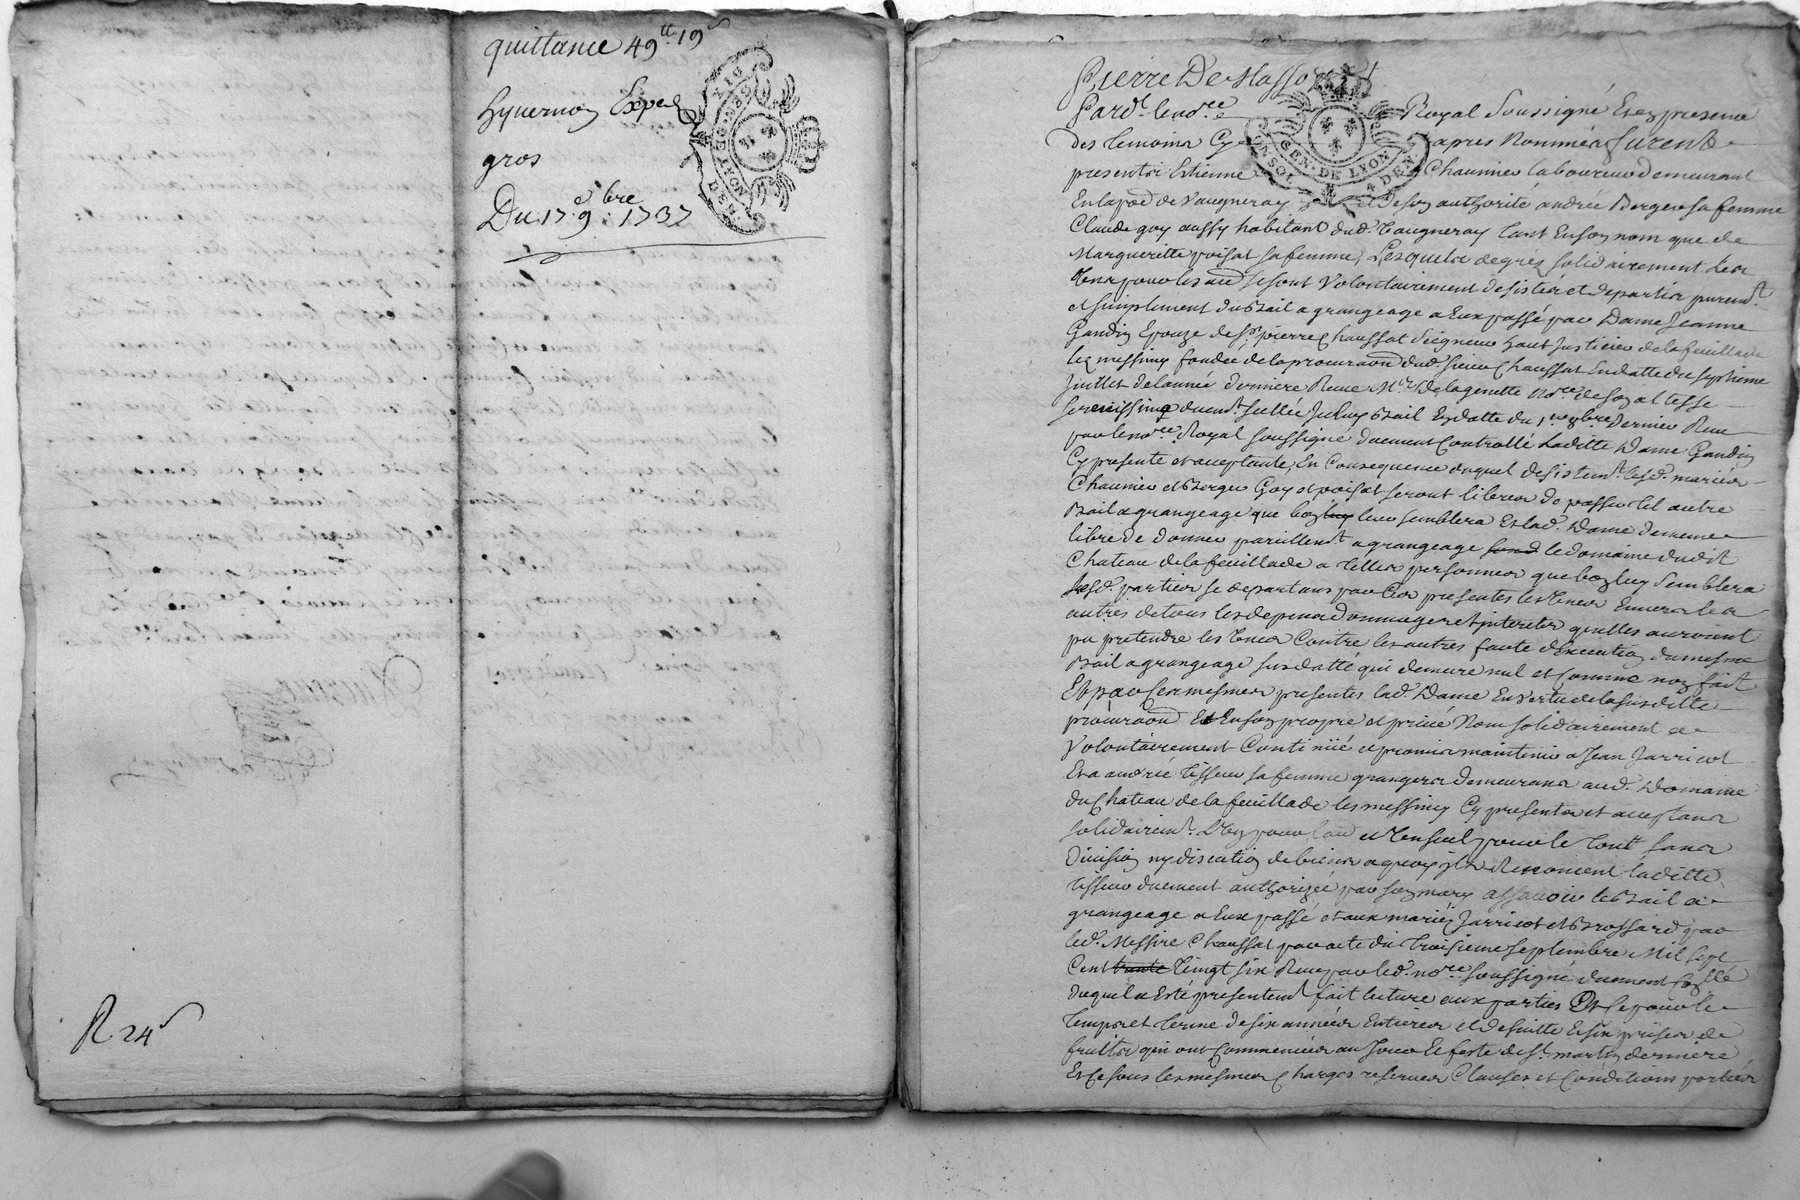 quittance 49tt 19s
hyvernon Exped
gros
Du 17e 9bre 1737
GEN. DE LYON
R 24s
Pierre De Masso
Pard. le nore Royal Soussigné Et en presence
des temoins Cy apres Nommés furent
presents Estienne Chaumier laboureur demeurant
En la pae de Vaugneray et de son authorité andrée Berger sa femme
Claude goy aussy habitant dud. Vaugneray tant En son nom que de
Margueritte poisat sa femme, Lesquels de grés solidairement les
Uns pour les au se sont Volontairement desistés et departis puremt
et simplement du Bail a grangeage a Eux passé par Dame Jeanne
Gandin Epouze de Sr pierre Chaussat Seigneur haut Justicier de la feuillade
les messimy fondée de la procuraon dud. sieur Chaussat En datte du septieme
Juillet de l'année derniere Receue Mr Delagenette Nore de son altesse
serenissime duemt scellée Iceluy Bail En datte du 1er xbre dernier Receu
par le nore Royal soussigné duement Controllé Laditte Dame Gandin
Cy presente et acceptante, En Consequence duquel desistemt lesd. mariés
Chaumier et Berger Goy et poisat seront libres de passer tel autre
Bail a grangeage que bon leur semblera Et lad. Dame demeure
libre de donner pareillemt a grangeage le domaine dudit
Chateau de la feuillade a telles personnes que bon luy semblera
Lesd. parties se departans par Ces presentes les Uns Envers les
autres de tous les depens Dommages Et interets quelles auroient
pu pretendre les Uns Contre les autres faute d'Execution du mesme
Bail a grangeage susdatté qui demeure nul et Comme non fait
Et par Ces mesmes presentes lad. Dame En vertu de la susditte
procuraon Et En son propre et privé Nom solidairement a
Volontairement Continüé et promis maintenir a Jean Jarricot
Et a andrée tisseur sa femme grangers demeurans aud. Domaine
du Chateau de la feuillade les messimy Cy presents et acceptans
solidairemt L'Un pour lau et l'Un seul pour le Tout sans
Division ny discution de biens a quoy ils Renoncent laditte
tisseur duement authorizée par son mary assavoir le Bail a
grangeage a Eux passé et aux mariés Jarricot et Brossard par
led. Messire Chaussat par acte du troisieme septembre Mil sept
Cent trante Vingt six Receu par led. nore soussigné duement Conllé
duquel a Esté presentemt fait lecture aux parties Et Ce pour le
temps et terme de six années Entieres et de suitte Et six prises de
fruits qui ont Commencées au Jour Et feste de St martin derniere
Et Ce sous les mesmes Charges reserves Clauses et Conditions portées